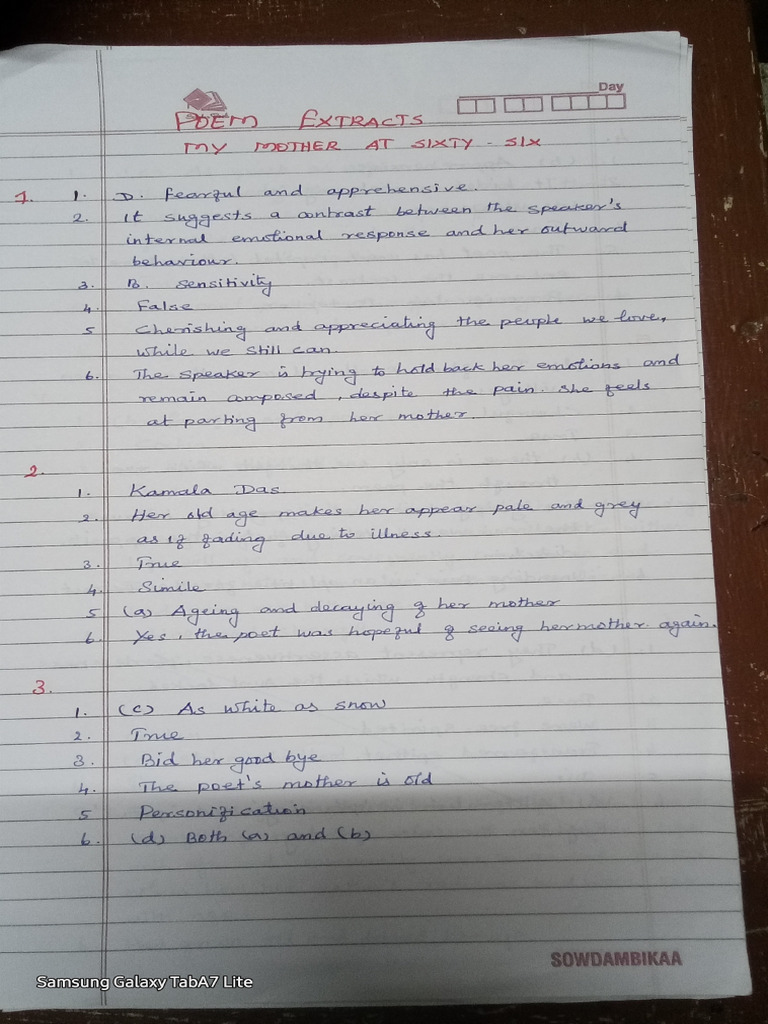 Day
POEM EXTRACTS
MY MOTHER AT SIXTY - SIX
1. 1. D. fearful and apprehensive.
2. It suggests a contrast between the speaker's
internal emotional response and her outward
behaviour.
3. B. sensitivity
4. False
5 Cherishing and appreciating the people we love,
while we still can.
6. The speaker is trying to hold back her emotions and
remain composed, despite the pain she feels
at parting from her mother.
2.
1. Kamala Das.
2. Her old age makes her appear pale and grey
as if fading due to illness.
3. True
4. Simile
5 (a) Ageing and decaying of her mother
6. Yes, the poet was hopeful of seeing her mother again.
3.
1. (c) As white as snow
2. True
3. Bid her good bye
4. The poet's mother is old
5 Personification
6. (d) Both (a) and (b)
SOWDAMBIKAA
Samsung Galaxy TabA7 Lite